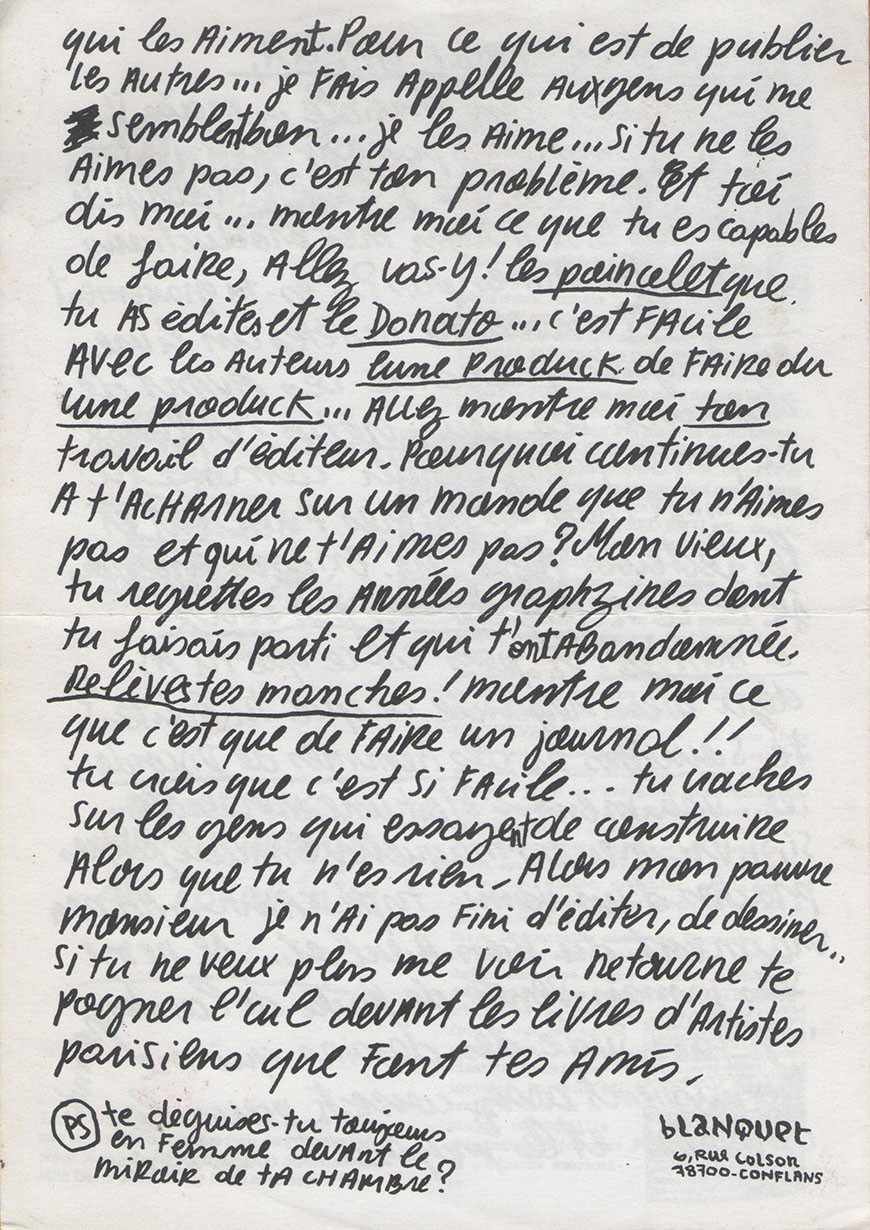 qui les Aiment. Pour ce qui est de publier
les Autres... je FAis Appelle Aux gens qui me
semblent bon... je les Aime... si tu ne les
Aimes pas, c'est ton problème. Et toi
dis moi... montre moi ce que tu es capables
de faire, Allez vas-y! les poincelet que
tu AS édités et le Donato... c'est FAcile
AVEC les Auteurs lune Produck de FAire du
lune produck... Allez montre moi ton
travail d'éditeur. Pourquoi continues-tu
A t'AcHArner sur un monde que tu n'Aimes
pas et qui ne t'Aimes pas? Mon vieux,
tu regrettes les Années graphzines dont
tu faisais parti et qui t'ont Abandonnée.
Relèves tes manches! montre moi ce
que c'est que de FAire un journal!!
tu crois que c'est si FAcile... tu craches
sur les gens qui essayent de construire
Alors que tu n'es rien. Alors mon pauvre
monsieur je n'Ai pas Fini d'éditer, de dessiner..
si tu ne veux plus me voir retourne te
pogner l'cul devant les livres d'Artistes
parisiens que Font tes Amis.
PS te déguises-tu toujours
en Femme devant le
miroir de tA CHAMBRE?
blANQUET
6, RUE COLSON
78700-CONFLANS